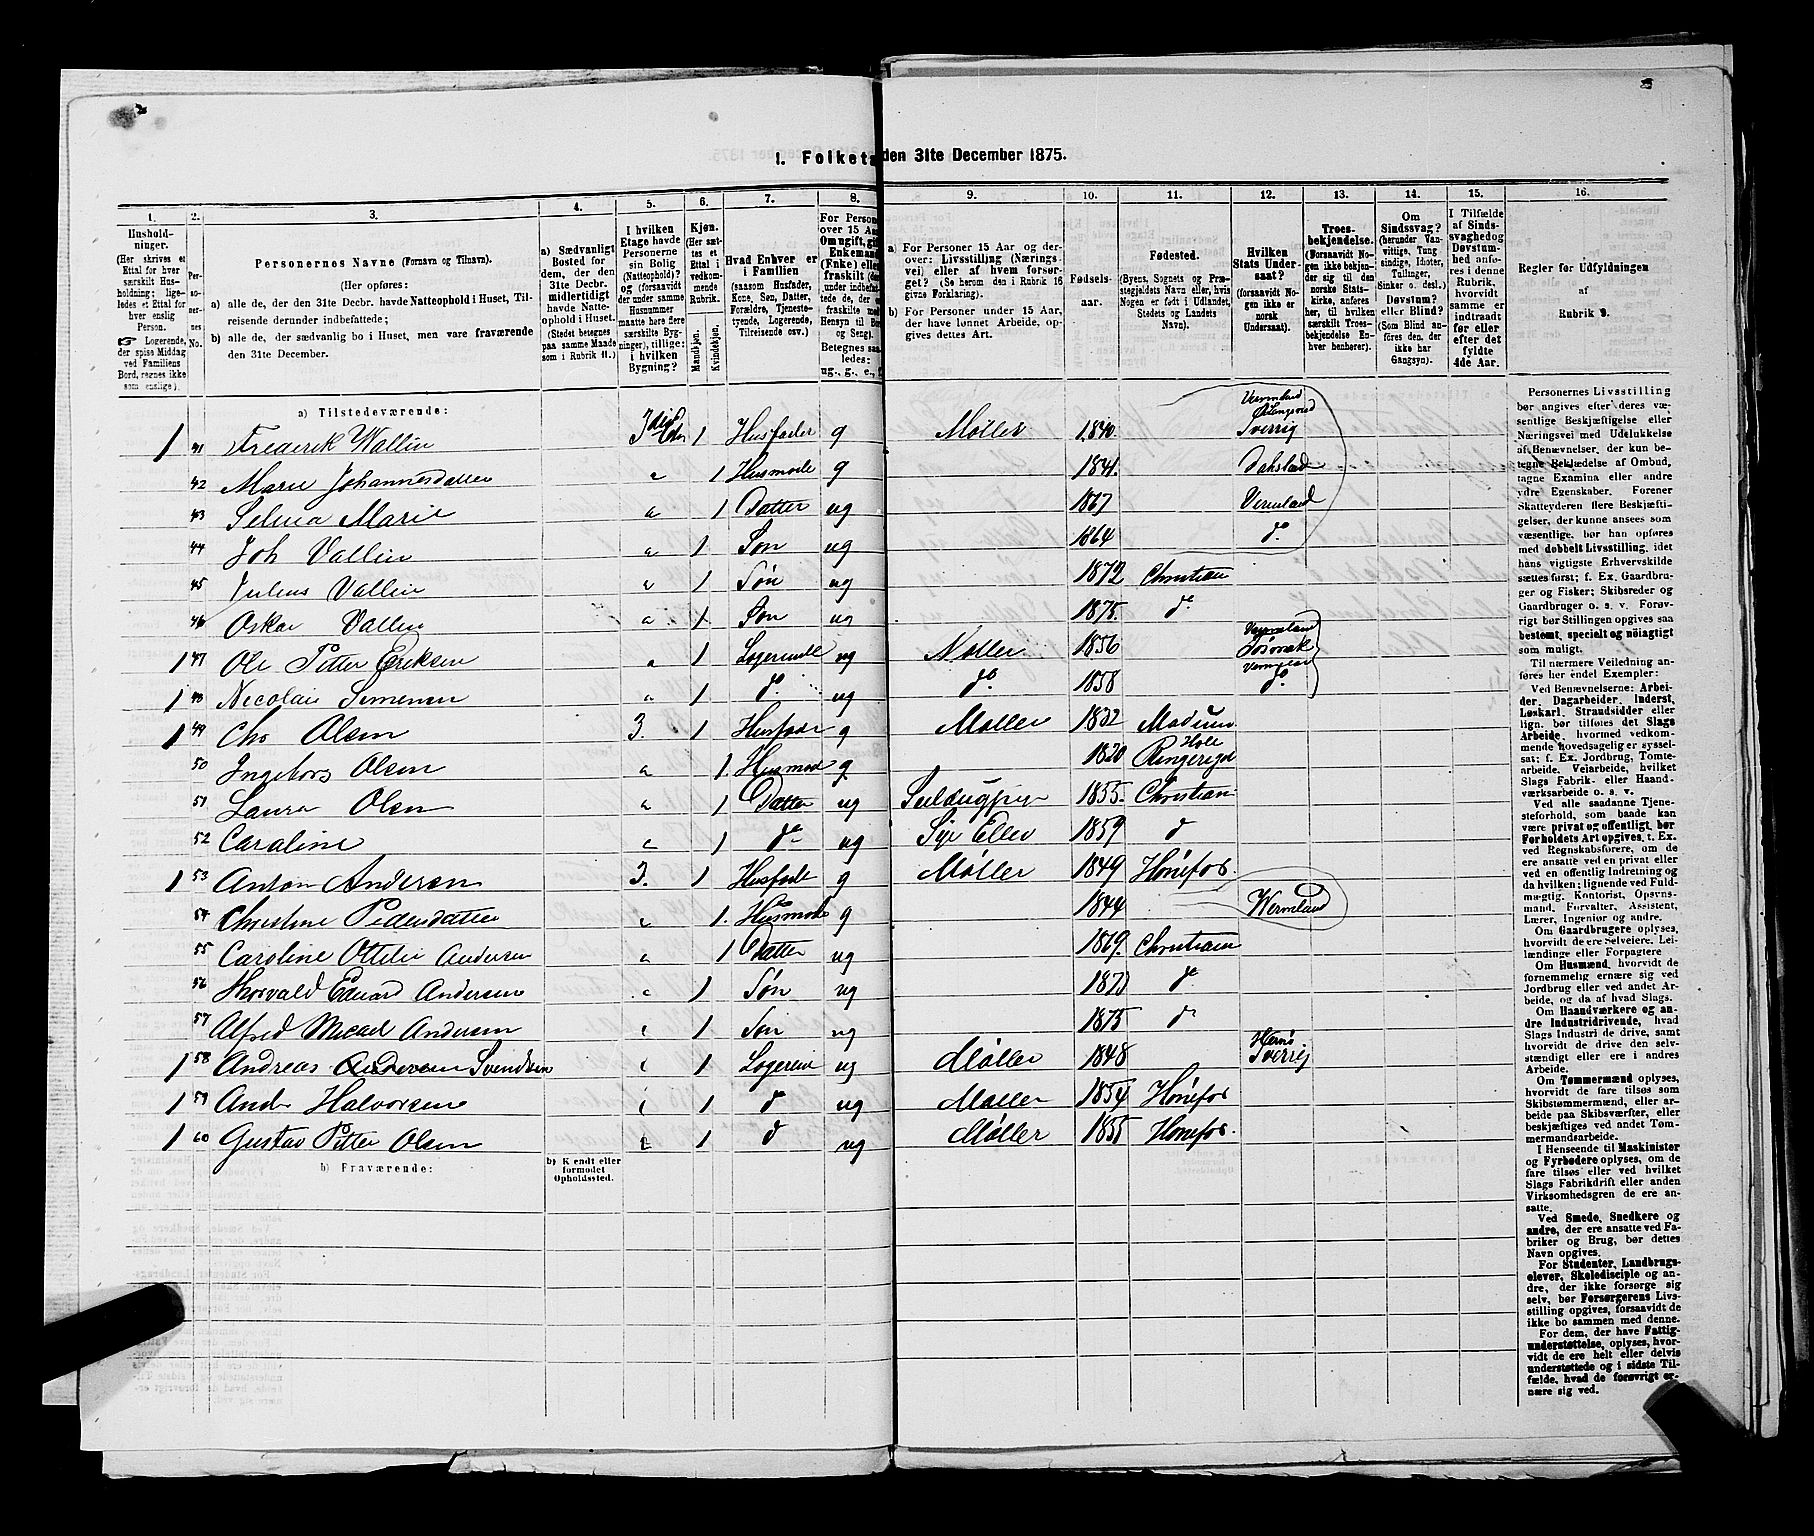 1. Folketæ
den 31te December 1875.
1.
2.
3.
4.
5.
6.
7.
8.
9.
10.
11.
12.
13.
14.
15.
16.
Hushold-
ninger.
(Her skrives et
Ettal for hver
særskilt Hus-
holdning; lige-
ledes et Ettal for
hver enslig
Person.
☞ Logerende,
der spise Middag
ved Familiens
Bord, regnes ikke
som enslige).
Personernes Navne (Fornavn og Tilnavn).
(Her opføres:
a) alle de, der den 31te Decbr. havde Natteophold i Huset, Til-
reisende derunder indbefattede;
b) alle de, der sædvanlig bo i Huset, men vare fraværende
den 31te December.
a) Sædvanligt
Bosted for
dem, der den
31te Decbr.
midlertidigt
havde Natte-
ophold i Huset.
(Stedet betegnes
paa samme Maade
som i Rubrik 11.)
I hvilken
Etage havde
Personerne
sin Bolig
(Natteophold)?
og (forsaavidt
der under samme
Husnummer
maatte høre flere
særskilte Byg-
ninger), tillige:
i hvilken
Bygning?
Kjøn.
(Her sæt-
tes et
Ettal i
vedkom-
mende
Rubrik.
Mandkjøn.
Kvindekjøn.
Hvad Enhver er
i Familien
(saasom Husfader,
Kone, Søn, Datter,
Forældre, Tjeneste-
tyende, Logerende,
Tilreisende osv.)
a) For Personer 15 Aar og der-
over: Livsstilling (Nærings-
vei) eller af hvem forsør-
get? (Se herom den i Rubrik 16
givne Forklaring).
b) For Personer under 15 Aar,
der have lønnet Arbeide, op-
gives dettes Art.
Fødsels-
aar.
Fødested.
(Byens, Sognets og Præ-
stegjeldets Navn eller, hvis
Nogen er født i Udlandet,
Stedets og Landets
Navn).
Hvilken
Stats Under-
saat?
(forsaavidt No-
gen ikke er
norsk
Undersaat).
Troes-
bekjendelse.
(Forsaavidt No-
gen ikke bekjen-
der sig til den
norske Stats-
kirke, anføres
her, til hvilken
særskilt Troes-
bekjendelse En-
hver henhører).
Om
Sindssvag?
(herunder Van-
vittige, Tung-
sindige, Idioter,
Tullinger,
Sinker o. desl.)
Døvstum?
eller Blind?
(Som Blind an-
føres den, der
ikke har
Gangsyn).
I Tilfælde
af Sinds-
svaghed og
Døvstum-
hed anfø-
res i denne
Rubrik,
hvorvidt
samme er
indtraadt
før eller
efter det
fyldte
4de Aar.
Regler for Udfyldningen
af
Rubrik 9.
a) Tilstedeværende:
1 41 Frederik Wallin 1 Husfader g Møller 1840 Sverrig
42 Marie Johannesdatter 1 Husmode g 1841.
43 Selma Marie 1 Datter ug 1867 Vermland
44 Joh Vallin 1 Søn ug 1864 do
45 Julius Vallin 1 Søn ug 1872 Christian
46 Oskar Vallin 1 Søn ug 1875. do
1 47 Ole Petter Eriksen 1 ug Møller 1856 Vermland
1 48 Necolai Simensen 1 do ug do 1858 do
1 49 Chr Olsen 3. 1 Husfader g Møller 1832 Modum
50 Ingebors Olsen 1 Husmod g 1820 Hole Ringerige
51 Laura Olsen 1 Datter ug 1855. Christian
52 Caroline 1 do ug 1859 do
1 53 Anton Andersen 3. 1 Husfade g Møller 1849 Hønefos
54 Christine Pedersdatter 1 Husmode g 1844 Wermland
55 Caroline Otteli Andersen 1 Datter ug 1869. Christian
56 Thorvald Eduard Andersen 1 Søn ug do
57 Alfred Micael Andersen 1 Søn ug 1875 do
1 58 Andreas Svendsen 1 ug Møller 1848 Sverrig
1 59 Andr Halvorsen 1 d ug Møller 1854 Hønefos
1 60 Gustav Petter Olsen 1 d ug Møller 1855 Hønefos.
b) Fraværende:
b) Kjendt eller
formodet
Opholdssted.
Personernes Livsstilling
bør angives efter deres væ-
sentlige Beskjæftigelse eller
Næringsvei med Udelukkelse
af Benævnelser, der kun be-
tegne Beklædelse af Ombud,
tagne Examina eller andre
ydre Egenskaber. Forener
Skatteyderen flere Beskjæfti-
gelser, der kunne ansees som
væsentlige, bør han opføres
med dobbelt Livsstilling, idet
hans vigtigste Erhvervskilde
sættes først; f. Ex. Gaardbru-
ger og Fisker; Skibsreder og
Gaardbruger o. s. v. Forøv-
rigt bør Stillingen opgives saa
bestemt, specielt og nøiagtigt
som muligt.
Til nærmere Veiledning an-
føres her endel Exempler:
Ved Benævnelserne: Arbei-
der, Dagarbeider, Inderst,
Løskarl, Strandsidder eller
lign. bør tilføies det Slags
Arbeide, hvormed vedkom-
mende hovedsagelig er syssel-
sat; f. Ex. Jordbrug, Tomte-
arbeide, Veiarbeide, hvilket
Slags Fabrik- eller Haand-
værksarbeide o. s. v.
Ved alle saadanne Tjene-
steforhold, som baade kan
være privat og offentligt, bør
Forholdets Art opgives, t. Ex.
ved Regnskabsførere, om de
ere ansatte ved en privat eller
ved en offentlig Indretning og
da hvilken; lignende ved Fuld-
mægtig, Kontorist, Opsyns-
mand, Forvalter, Assistent,
Lærer, Ingeniør og andre.
Om Gaardbrugere oplyses,
hvorvidt de ere Selveiere, Lei-
lændinge eller Forpagtere
Om Husmænd, hvorvidt de
fornemmelig ernære sig ved
Jordbrug eller ved andet Ar-
beide, og da af hvad Slags.
Om Haandværkere og an-
dre Industridrivende, hvad
Slags Industri de drive, samt
hvorvidt de drive den selv-
stændigt eller ere i andres
Arbeide.
Om Tømmermænd oplyses,
hvorvidt de fare tilsøs som
Skibstømmermænd, eller ar-
beide paa Skibsværfter, eller
beskjæftiges ved andet Tøm-
mermandsarbeide.
I Henseende til Maskinister
og Fyrbødere oplyses, om de
fare tilsøs eller ved hvilket
Slags Fabrikdrift eller anden
Virksomhedsgren de ere an-
satte.
Ved Smede, Snedkere og
andre, der ere ansatte ved Fa-
briker og Brug, bør dettes
Navn opgives.
For Studenter, Landbrugs-
elever, Skoledisciple og an-
dre, der ikke forsørge sig
selv, bør Forsørgerens Livs-
stilling opgives, forsaavidt de
ikke bo sammen med denne.
For dem, der have Fattig-
understøttelse, oplyses, hvor-
vidt de ere helt eller delvis
understøttede og i sidste Til-
fælde, hvad de forøvrigt er-
nære sig ved.